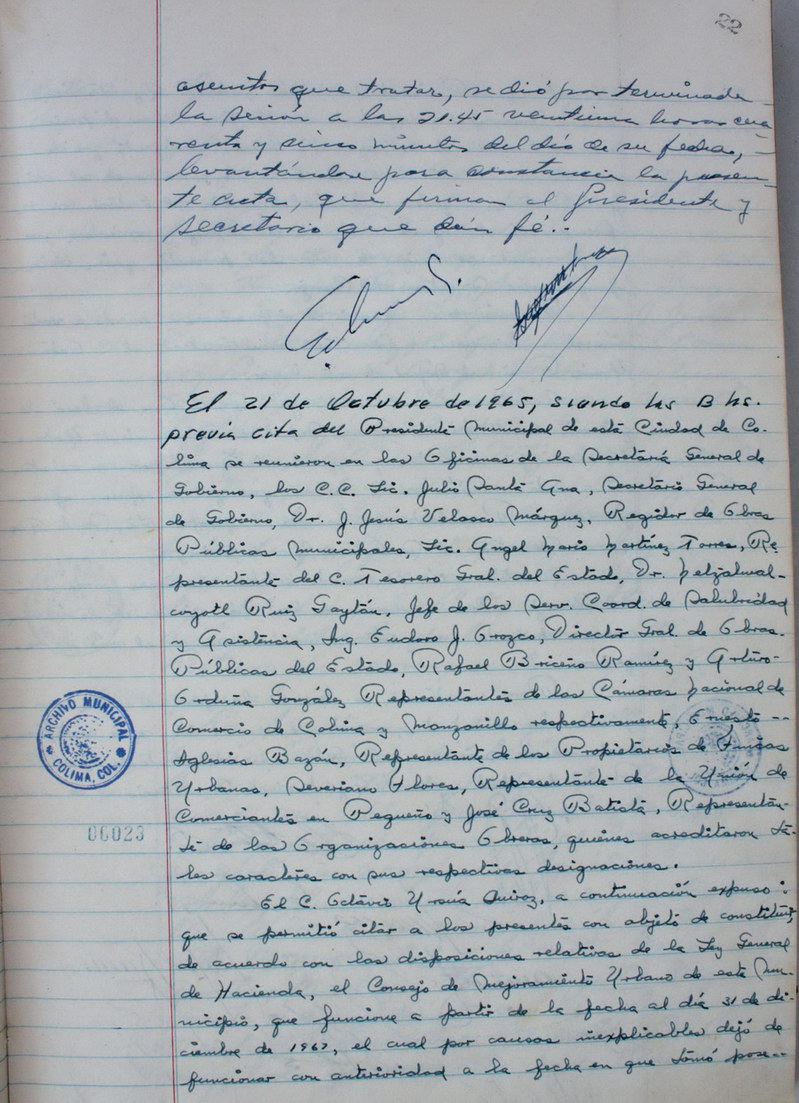 22
asuntos que tratar, se dió por terminada
la sesión a las 21.45 veintiuna horas cua
renta y cinco minutos del día de su fecha,
levantándose para constancia la presen-
te acta, que firman el Presidente y
Secretario que dán fé..
El 21 de Octubre de 1965, siendo las 13 hs.
previa cita del Presidente Municipal de esta Ciudad de Co-
lima se reunieron en las Oficinas de la Secretaría General de
Gobierno, los C.C. Lic. Julio Santa Ana, Secretario General
de Gobierno, Dr. J. Jesús Velasco Márquez, Regidor de Obras
Públicas Municipales, Lic. Angel Mario Martínez Torres, Re-
presentante del C. Tesorero Gral. del Estado, Dr. Netzahual-
coyotl Ruiz Gaytán, Jefe de los Serv. Coord. de Salubridad
y Asistencia, Ing. Eudoro J. Orozco, Director Gral. de Obras-
Públicas del Estado, Rafael Briceño Ramírez y Arturo-
Orduña González Representantes de las Cámaras Nacional de
Comercio de Colima y Manzanillo respectivamente, Ernesto --
Iglesias Bazán, Representante de los Propietarios de Fincas
Urbanas, Severiano Flores, Representante de la Unión de
Comerciantes en Pequeño y José Cruz Batista, Representan-
te de las Organizaciones Obreras, quienes acreditaron ta-
les caracteres con sus respectivas designaciones.
El C. Octavio Ursúa Quiroz, a continuación expuso:
que se permitió citar a los presentes con objeto de constituir,
de acuerdo con las disposiciones relativas de la Ley General
de Hacienda, el Consejo de Mejoramiento Urbano de este Mu-
nicipio, que funcione a partir de la fecha al día 31 de di-
ciembre de 1967, el cual por causas inexplicables dejó de
funcionar con anterioridad a la fecha en que tomó pose--
ARCHIVO MUNICIPAL
COLIMA, COL.
00023